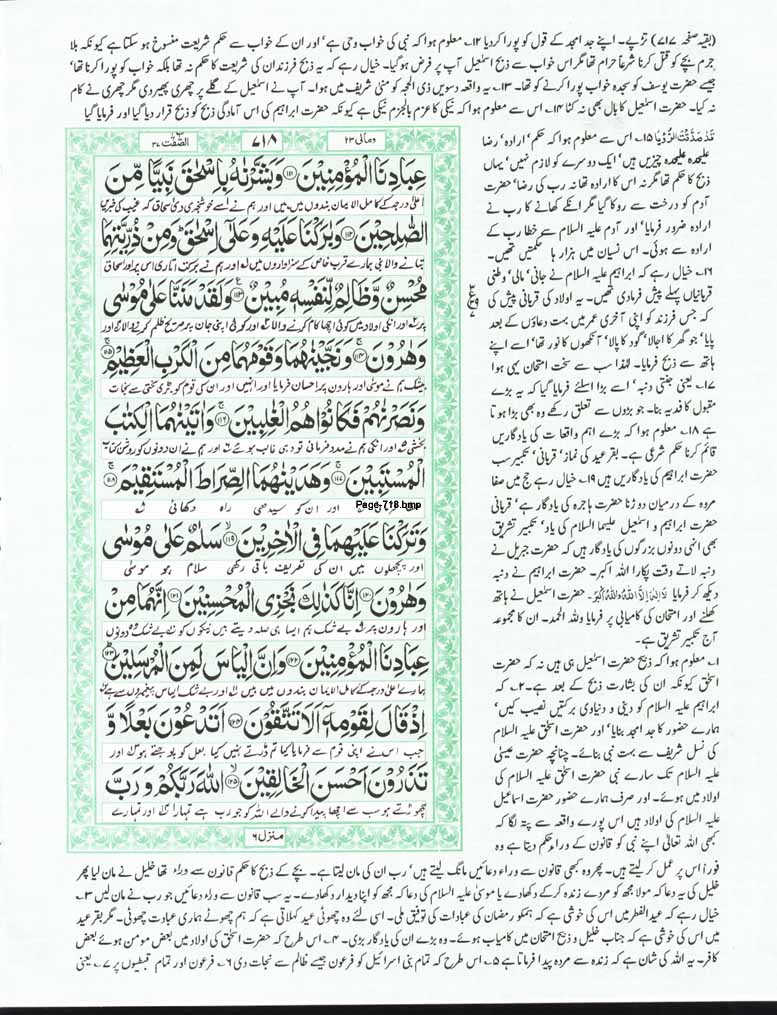 (بقیہ صفحہ ۷۱۷) تڑپے۔ اپنے جد امجد کے قول کو پورا کر دیا ۱۲۔ معلوم ہوا کہ نبی کی خواب وحی ہے' اور ان کے خواب سے حکم شریعت منسوخ ہو سکتا ہے کیونکہ بلا
جرم بچے کو قتل کرنا شرعاً حرام تھا مگر اس خواب سے ذبح اسمٰعیل آپ پر فرض ہو گیا۔ خیال رہے کہ یہ ذبح فرزند ان کی شریعت کا حکم نہ تھا بلکہ خواب کو پورا کرنا تھا'
جیسے حضرت یوسف کو سجدہ خواب پورا کرنے کو تھا۔ ۱۳۔ یہ واقعہ دسویں ذی الحجہ کو منیٰ شریف میں ہوا۔ آپ نے اسمٰعیل کے گلے پر چھری پھیر دی مگر چھری نے کام
نہ کیا۔ حضرت اسمٰعیل کا بال بھی نہ کٹا ۱۴۔ اس سے معلوم ہوا کہ نیکی کا عزم بالجزم نیکی ہے کیونکہ حضرت ابراہیم کی اس آمادگی ذبح کو ذبح قرار دیا گیا اور فرمایا گیا
قَدْ صَدَّقْتَ الرُّؤْيَا ۱۵۔ اس سے معلوم ہوا کہ حکم' ارادہ' رضا
علیحدہ علیحدہ چیزیں ہیں' ایک دوسرے کو لازم نہیں' یہاں
ذبح کا حکم تھا مگر نہ اس کا ارادہ تھا نہ رب کی رضا' حضرت
آدم کو درخت سے روکا گیا مگر انکے کھانے کا رب نے
ارادہ ضرور فرمایا' اور آدم علیہ السلام سے خطا رب کے
ارادہ سے ہوئی۔ اس نسیان میں ہزار ہا حکمتیں تھیں۔
۱۶۔ خیال رہے کہ ابراہیم علیہ السلام نے جانی' مالی' وطنی
قربانیاں پہلے پیش فرمادی تھیں۔ یہ اولاد کی قربانی پیش کی
کہ جس فرزند کو اپنی آخری عمر میں بہت دعاؤں کے بعد
پایا' جو گھر کا اجالا' گود کا پالا' آنکھوں کا نور تھا' اسے اپنے
ہاتھ سے ذبح فرمایا۔ لہٰذا سب سے سخت امتحان یہی ہوا
۱۷۔ یعنی جنتی دنبہ' اسے بڑا اسلئے فرمایا گیا کہ یہ بڑے
مقبول کا فدیہ بنا۔ جو بڑوں سے تعلق رکھے وہ بھی بڑا ہوتا
ہے ۱۸۔ معلوم ہوا کہ بڑے اہم واقعات کی یادگاریں
قائم کرنا حکم شرعی ہے۔ بقر عید کی نماز' قربانی' تکبیر سب
حضرت ابراہیم کی یادگاریں ہیں ۱۹۔ خیال رہے حج میں صفا
مروہ کے درمیان دوڑنا حضرت ہاجرہ کی یادگار ہے' قربانی
حضرت ابراہیم و اسمٰعیل علیہما السلام کی یاد' تکبیر تشریق
بھی انہی دونوں بزرگوں کی یادگار ہیں کہ حضرت جبریل نے
دنبہ لاتے وقت پکارا اللہ اکبر۔ حضرت ابراہیم نے دنبہ
دیکھ کر فرمایا لَا اِلٰهَ اِلَّا اللّٰهُ وَاللّٰهُ اَكْبَرُ۔ حضرت اسمٰعیل نے ہاتھ
کھلنے اور امتحان کی کامیابی پر فرمایا وللہ الحمد۔ ان کا مجموعہ
آج تکبیر تشریق ہے۔
۱۔ معلوم ہوا کہ ذبیح حضرت اسمٰعیل ہی ہیں نہ کہ حضرت
اسحٰق کیونکہ ان کی بشارت ذبح کے بعد ہے۔ ۲۔ کہ
ابراہیم علیہ السلام کو دینی و دنیاوی برکتیں نصیب کیں'
ہمارے حضور کا جد امجد بنایا' اور حضرت اسحٰق علیہ السلام
کی نسل شریف سے بہت نبی بنائے۔ چنانچہ حضرت عیسیٰ
علیہ السلام تک سارے نبی حضرت اسحٰق علیہ السلام کی
اولاد میں ہوئے۔ اور صرف ہمارے حضور حضرت اسماعیل
علیہ السلام کی اولاد ہیں اس پورے واقعہ سے پتہ لگا کہ
کبھی اللہ تعالیٰ اپنے نبی کو قانون کے وراء حکم دیتا ہے وہ
الصّٰفّٰت ۳۷
۷۱۸
ومالی ۲۳
عِبَادِنَا الْمُؤْمِنِيْنَ ۝۱۱۱ وَبَشَّرْنٰهُ بِاِسْحٰقَ نَبِيًّا مِّنَ
اعلیٰ درجہ کے کامل الایمان بندوں میں ہیں اور ہم نے اسے خوشخبری دی اسحاق کہ غیب کی خبریں
الصّٰلِحِيْنَ ۝۱۱۲ وَبٰرَكْنَا عَلَيْهِ وَعَلٰٓى اِسْحٰقَ ؕ وَمِنْ ذُرِّيَّتِهِمَا
بتانے والا نبی ہمارے قرب خاص کے سزاواروں میں اور ہم نے برکت اتاری اس پر اور اسحاق
مُحْسِنٌ وَّظَالِمٌ لِّنَفْسِهٖ مُبِيْنٌ ۝۱۱۳ وَلَقَدْ مَنَنَّا عَلٰى مُوْسٰى
پر اور انکی اولاد میں کوئی اچھا کام کرنے والا اور کوئی اپنی جان پر صریح ظلم کرنے والا اور
وَهٰرُوْنَ ۝۱۱۴ وَنَجَّيْنٰهُمَا وَقَوْمَهُمَا مِنَ الْكَرْبِ الْعَظِيْمِ ۝۱۱۵
بیشک ہم نے موسیٰ اور ہارون پر احسان فرمایا اور انہیں اور ان کی قوم کو بڑی سختی سے نجات
وَنَصَرْنٰهُمْ فَكَانُوْا هُمُ الْغٰلِبِيْنَ ۝۱۱۶ وَاٰتَيْنٰهُمَا الْكِتٰبَ
بخشی اور انکی ہم نے مدد فرمائی تو وہی غالب ہوئے اور ہم نے ان دونوں کو روشن کتاب
الْمُسْتَبِيْنَ ۝۱۱۷ وَهَدَيْنٰهُمَا الصِّرَاطَ الْمُسْتَقِيْمَ ۝۱۱۸
اور ان کو سیدھی راہ دکھائی
Page-718.bmp
وَتَرَكْنَا عَلَيْهِمَا فِى الْاٰخِرِيْنَ ۝۱۱۹ سَلٰمٌ عَلٰى مُوْسٰى
اور پچھلوں میں ان کی تعریف باقی رکھی سلام ہو موسیٰ
وَهٰرُوْنَ ۝۱۲۰ اِنَّا كَذٰلِكَ نَجْزِى الْمُحْسِنِيْنَ ۝۱۲۱ اِنَّهُمَا مِنْ
اور ہارون پر بے شک ہم ایسا ہی صلہ دیتے ہیں نیکوں کو بے شک وہ دونوں
عِبَادِنَا الْمُؤْمِنِيْنَ ۝۱۲۲ وَاِنَّ اِلْيَاسَ لَمِنَ الْمُرْسَلِيْنَ ۝۱۲۳
ہمارے اعلیٰ درجہ کے کامل الایمان بندوں میں ہیں اور بے شک الیاس پیغمبروں سے ہے
اِذْ قَالَ لِقَوْمِهٖٓ اَلَا تَتَّقُوْنَ ۝۱۲۴ اَتَدْعُوْنَ بَعْلًا وَّ
جب اس نے اپنی قوم سے فرمایا کیا تم ڈرتے نہیں کیا بعل کو پوجتے ہو اور
تَذَرُوْنَ اَحْسَنَ الْخَالِقِيْنَ ۝۱۲۵ اللّٰهَ رَبَّكُمْ وَرَبَّ
چھوڑتے ہو سب سے اچھا پیدا کرنے والے اللہ کو جو رب ہے تمہارا اور تمہارے
منزل ۶
فوراً اس پر عمل کر لیتے ہیں۔ پھر وہ بھی قانون سے وراء دعائیں مانگ لیتے ہیں' رب ان کی مان لیتا ہے۔ بچے کے ذبح کا حکم قانون سے وراء تھا خلیل نے مان لیا پھر
خلیل کی یہ دعا کہ مولا مجھ کو مردے زندہ کر کے دکھا دے یا موسیٰ علیہ السلام کی دعا کہ مجھ کو اپنا دیدار دکھادے۔ یہ سب قانون سے وراء دعائیں جو رب نے مان لیں ۳۔
خیال رہے کہ عید الفطر میں اس کی خوشی ہے کہ ہمکو رمضان کی عبادات کی توفیق ملی۔ اسی لئے وہ چھوٹی عید کہلاتی ہے کہ ہم چھوٹے ہماری عبادت چھوٹی۔ مگر بقر عید
میں اس کی خوشی ہے کہ جناب خلیل و ذبیح امتحان میں کامیاب ہوئے۔ وہ بڑے ان کی یادگار بڑی۔ ۴۔ اس طرح کہ حضرت اسحٰق کی اولاد میں بعض مومن ہوئے بعض
کافر۔ یہ اللہ کی شان ہے کہ زندہ سے مردہ پیدا فرماتا ہے ۵۔ اس طرح کہ تمام بنی اسرائیل کو فرعون جیسے ظالم سے نجات دی ۶۔ فرعون اور تمام قبطیوں پر ۷۔ یعنی